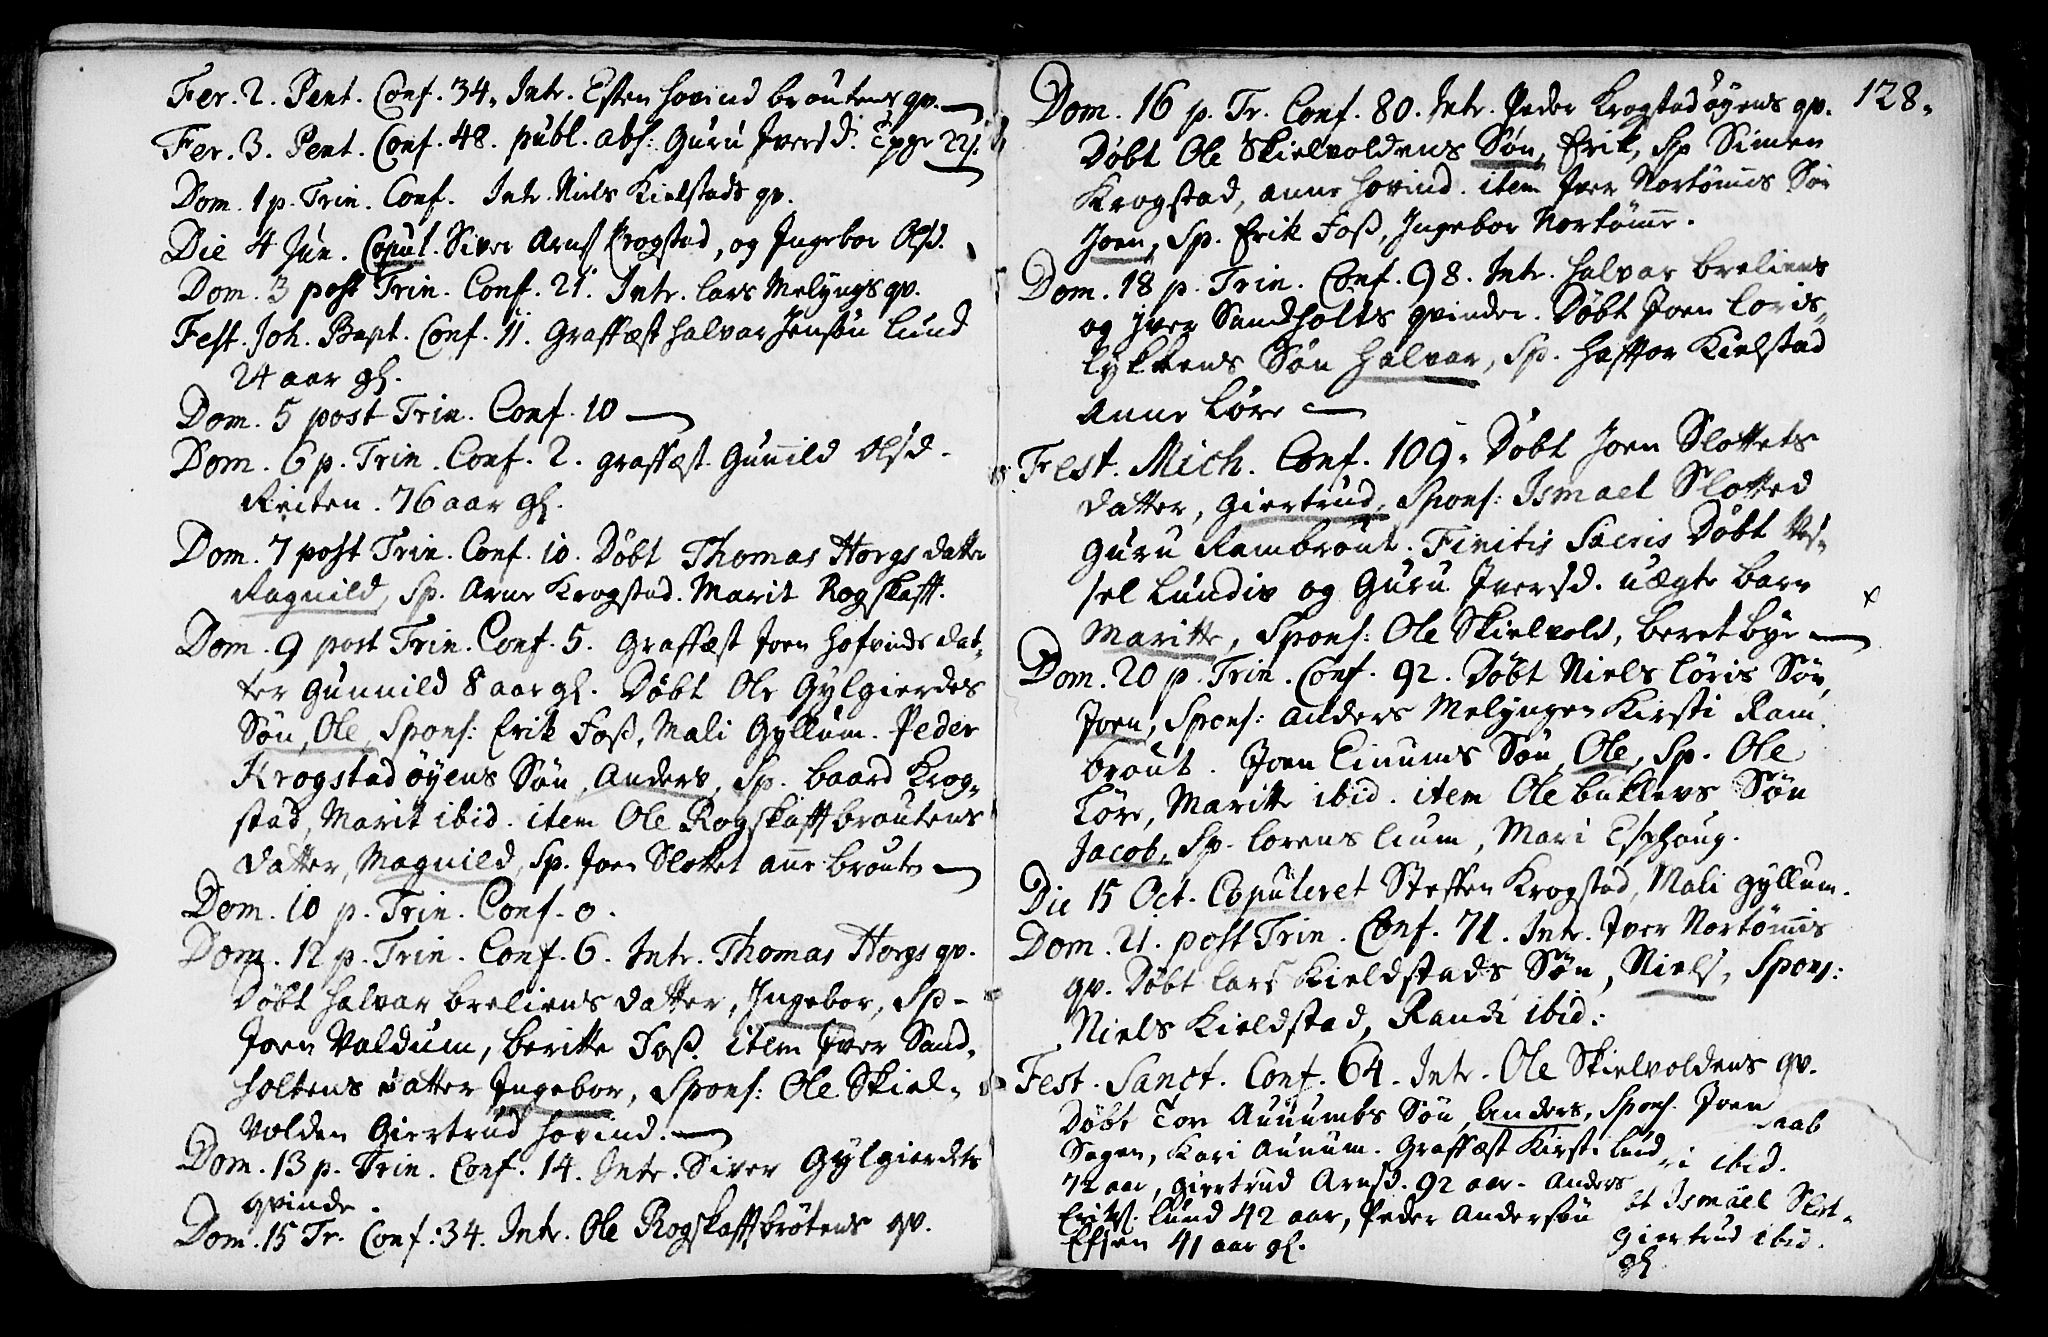 Fer. 2. Pent. Conf. 34. Intr. Esten hovind broutens qv.
Fer. 3. Pent. Conf. 48. publ. abs: Guru Iversd.
Dom. 1 p. Trin. Conf. Intr. Niels Kielstads qv.
Die 4 Jun. Copul. Siver Arns Krogstad, og Ingebor Olsd.
Dom. 3 post Trin. Conf. 21. Intr. lars Melyngs qv.
Fest. Joh. Bapt. Conf. 11. Graffæst halvar Jensøn lund
24 aar gl.
Dom. 5 post Trin. Conf. 10
Dom. 6 p. Trin. Conf. 2. graffæst Gunild Olsd.
Reiten. 76 aar gl.
Dom. 7 post Trin. Conf. 10. Døbt Thomas Horgs datter
Ragnild, Sp. Arne Krogstad. Marit Rogskaft.
Dom. 9 post Trin. Conf. 5. Graffæst Joen hofvinds dat-
ter Gunnild 8 aar gl. Døbt Ole Gylgierdes
Søn, Ole, Spons: Erik Foss, Mali Gyllum. Peder
Krogstadøyens Søn, Anders, Sp. baard Krog-
stad, Marit ibid. item Ole Rogskaftbroutens
datter, Magnild, Sp. Joen Slottet ane broute
Dom. 10 p. Trin. Conf. 0.
Dom. 12 p. Trin. Conf. 6. Intr. Thomas Horgs qv.
Døbt halvar breliens datter, Ingebor, Sp-
Joen Valdum, beritte Foss. item Iver Sand-
holtens datter Ingebor, Spons: Ole Skiel-
volden Giertrud hovind.
Dom. 13 p. Trin. Conf. 14. Intr. Siver Gylgierdets
qvinde.
Dom. 15 Tr. Conf. 34. Intr. Ole Rogskaftbrøtens qv.
128.
Dom. 16 p. Tr. Conf. 80. Intr. Peder Krogstadøyens qv.
Døbt Ole Skielvoldens Søn, Erik, Sp Simen
Krogstad, anne hovind. item Iver Nortømes Søn
Joen, Sp. Erik Foss, Ingebor Nortøme.
Dom. 18 p. Trin. Conf. 98. Intr. halvar breliens
og Iver Sandholts qvinder. Døbt Joen loris-
lykkens Søn halvar, Sp. haftor Kielstad
Anne Løre
Fest. Mich. Conf. 109. Døbt Joen Slottets
datter, Giertrud, Spons: Ismael Slotted
Guru Rambrout. Finitis Sacris Døbt
sel Lundis og Guru Iversd. uægte barn
Maritte, Spons: Ole Skielvold, beret bye
Dom. 20 p. Trin. Conf. 92. Døbt Niels Løris Søn,
Joen, Spons: Anders Melyngen Kirsti Ram
brout. Joen Einums Søn, Ole, Sp. Ole
Løre, Maritte ibid. item Ole buklevs Søn
Jacob, Sp. lorens lium, Mari Esphaug.
Die 15 Oct. Copuleret Steffen Krogstad, Mali Gyllum.
Dom. 21. post Trin. Conf. 71. Intr. Iver Nortømes
qv. Døbt lars Kieldstads Søn, Niels, Spons:
Niels Kieldstad, Randi ibid:
Fest. Sanct. Conf. 64. Intr. Ole Skielvoldens qv.
Døbt Tore Aunumbs Søn, Anders, Spons. Joen
Sagen, Kari Aunum. Graffæst Kirsti lund
72 aar, Giertrud Arnsd. 92 aar. Anders
Eriks. Lund 42 aar, Peder Andersøn
41 aar gl.
aab
i ibid.
Ismael Slot-
Giertrud ibid.
gl